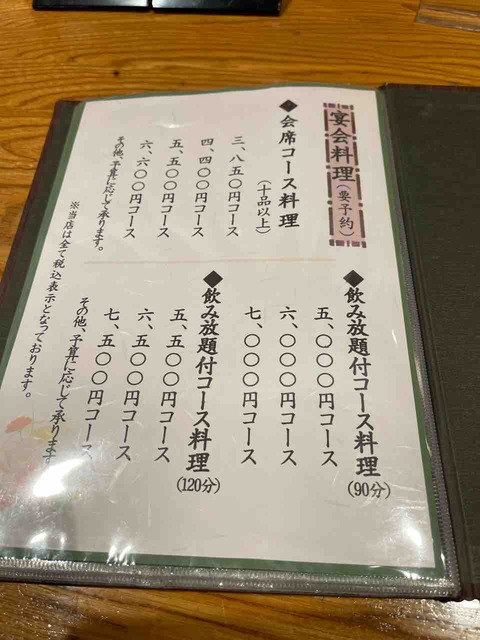 宴会料理(要予約)
◆会席コース料理
(十品以上)
三、八五〇円コース
四、四〇〇円コース
五、五〇〇円コース
六、六〇〇円コース
その他、予算に応じて承ります。
◆飲み放題付コース料理(90分)
五、〇〇〇円コース
六、〇〇〇円コース
七、〇〇〇円コース
◆飲み放題付コース料理(120分)
五、五〇〇円コース
六、五〇〇円コース
七、五〇〇円コース
その他、予算に応じて承ります
※当店は全て税込表示となっております。